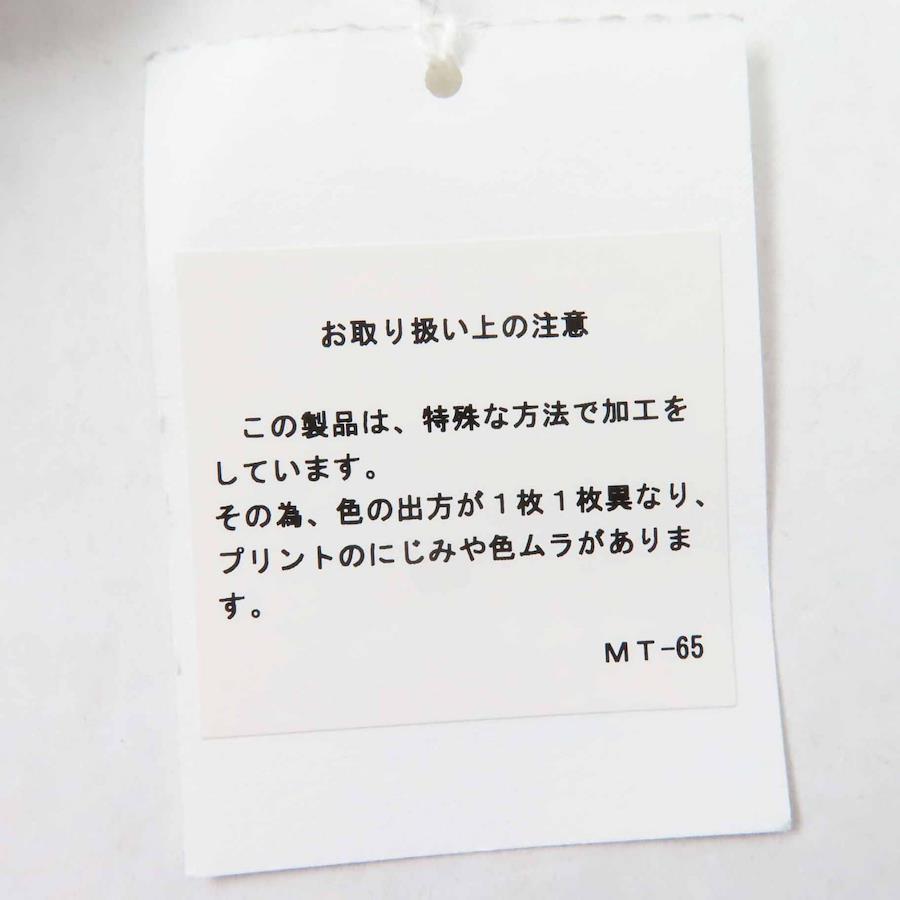 お取り扱い上の注意
この製品は、特殊な方法で加工を
しています。
その為、色の出方が１枚１枚異なり、
プリントのにじみや色ムラがありま
す。
ＭＴ-65